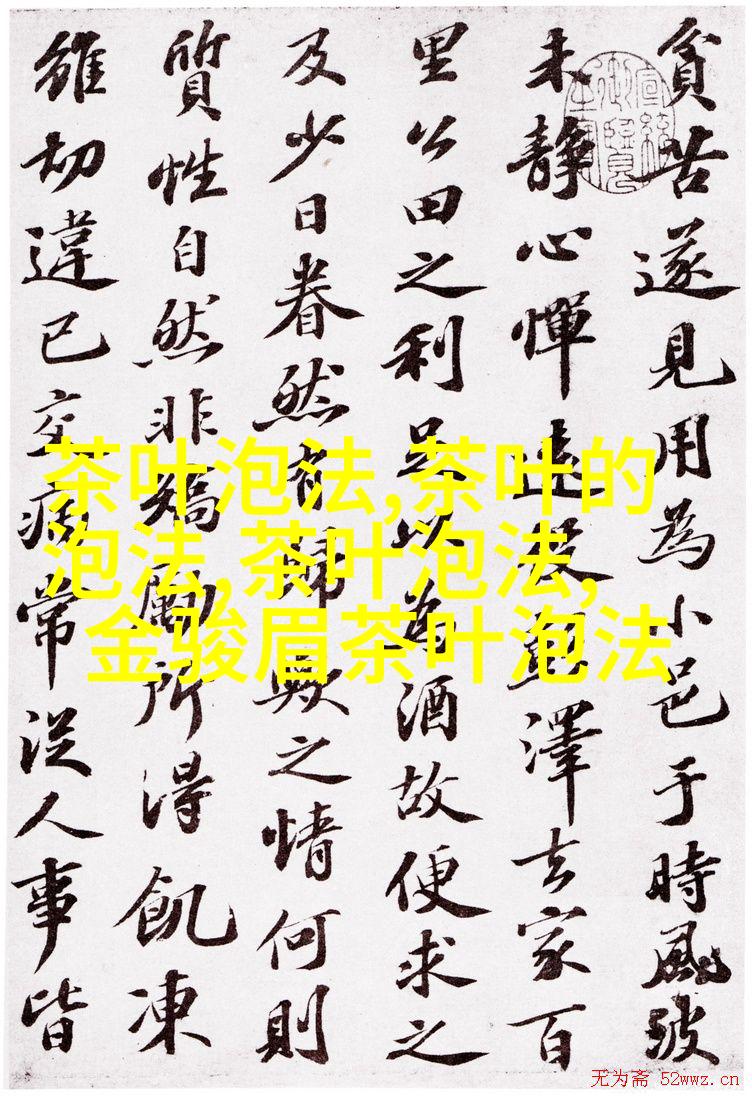 貧苦遂見用為小邑于時風波
未靜心憚遠役彭澤去家百
里公田之利足以為酒故便求之
及少日眷然有歸歟之情何則
質性自然非矯厲所得飢凍
雖切違己交病常從人事皆
茶叶泡法,茶叶的
泡法,茶叶泡法,
金骏眉茶叶泡法
无为斋 52wwz.cn